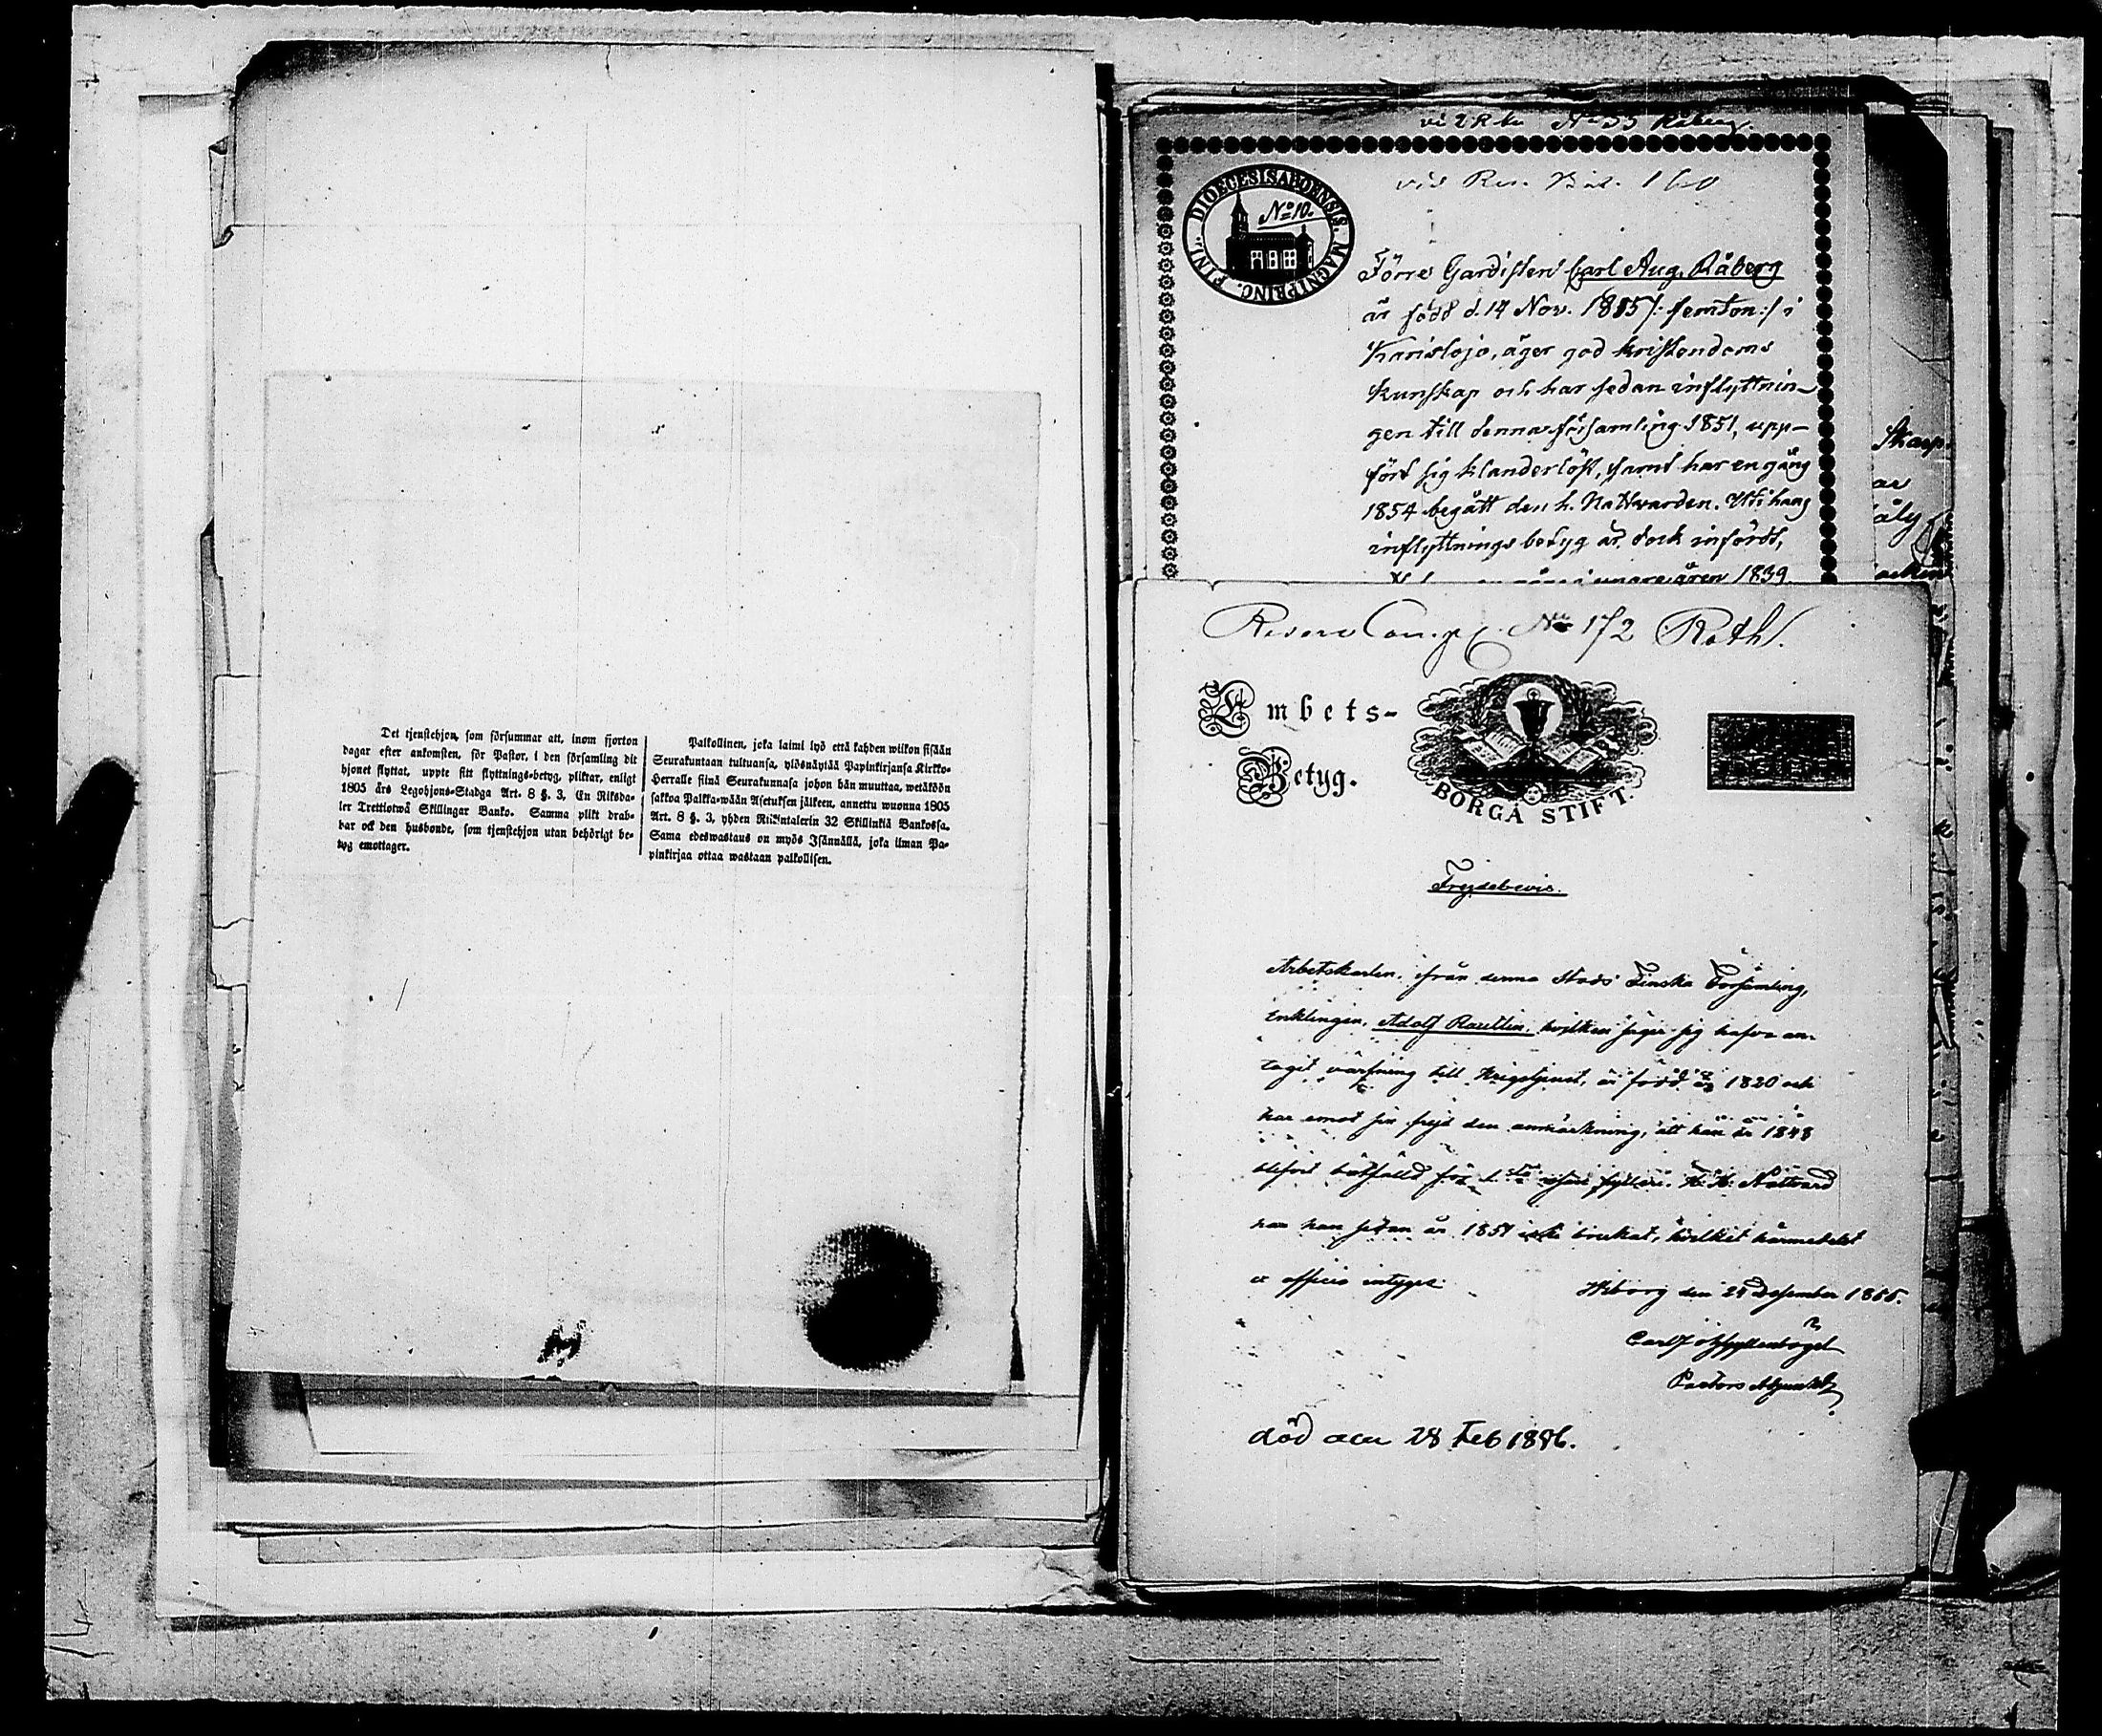 Det tjenstehjon, som försummar att, inom fjorton
dagar efter ankomsten, för Pastor, i den församling dit
hjonet flyttat, uppte sitt flyttnings-betyg, pliktar, enligt
1805 års Legohjons-Stadga Art. 8 §. 3, En Riksda-
ler Trettiotwå Skillingar Banko. Samma plikt drab-
bar ock den husbonde, som tjenstehjon utan behörigt be-
tyg emottager.
Palkollinen, joka laimi lyö että kahden wiikon sisään
Seurakuntaan tultuansa, ylösnäytää Papinkirjansa Kirkko-
Herralle siinä Seurakunnasa johon hän muuttaa, wetäköön
sakkoa Palkka-wään Asetuksen jälkeen, annettu wuonna 1805
Art. 8 §. 3, yhden Riikintalerin 32 Skillinkiä Bankossa.
Sama edeswastaus on myös Isännällä, joka ilman Pa-
pinkirjaa ottaa wastaan palkollisen.
No 33 Råberg.
160
DIOECESIS ABOENSIS MAGNI PRINC. FINL.
No 10.
Förre Gardisten Carl Aug. Råberg
är född d. 14 Nov. 1815 /: femton :/ i
Karislojo, äger god kristendoms
kunskap och har sedan inflyttnin-
gen till denna församling 1851, upp-
fört sig klanderlöst, samt har en gång
1854 begått den h. Nattvarden. Uti hans
inflyttnings betyg är dock infördt,
åren 1839
Skarp
ar
Reserv Comp. No 172 Roth.
Embets-
Betyg.
BORGÅ STIFT.
Frejdebevis.
Arbetskarlen, ifrån denna Stads Finska Församling,
Enklingen, Adolf Rautlin, hvilken säger sig hafva an-
tagit värfning till Krigstjenst, är född år 1820 och
har emot sin frejd den anmärkning, att han år 1848
blifvit bötfälld för 1sta resan fylleri. H. H. Nattvard
har han sedan år 1851 icke brukat, hvilket härmedelst
ex officio intygas.
Wiborg den 29 December 1855.
Carl Gyllenbögel
Pastors Adjunkt
död den 28 Feb 1886.